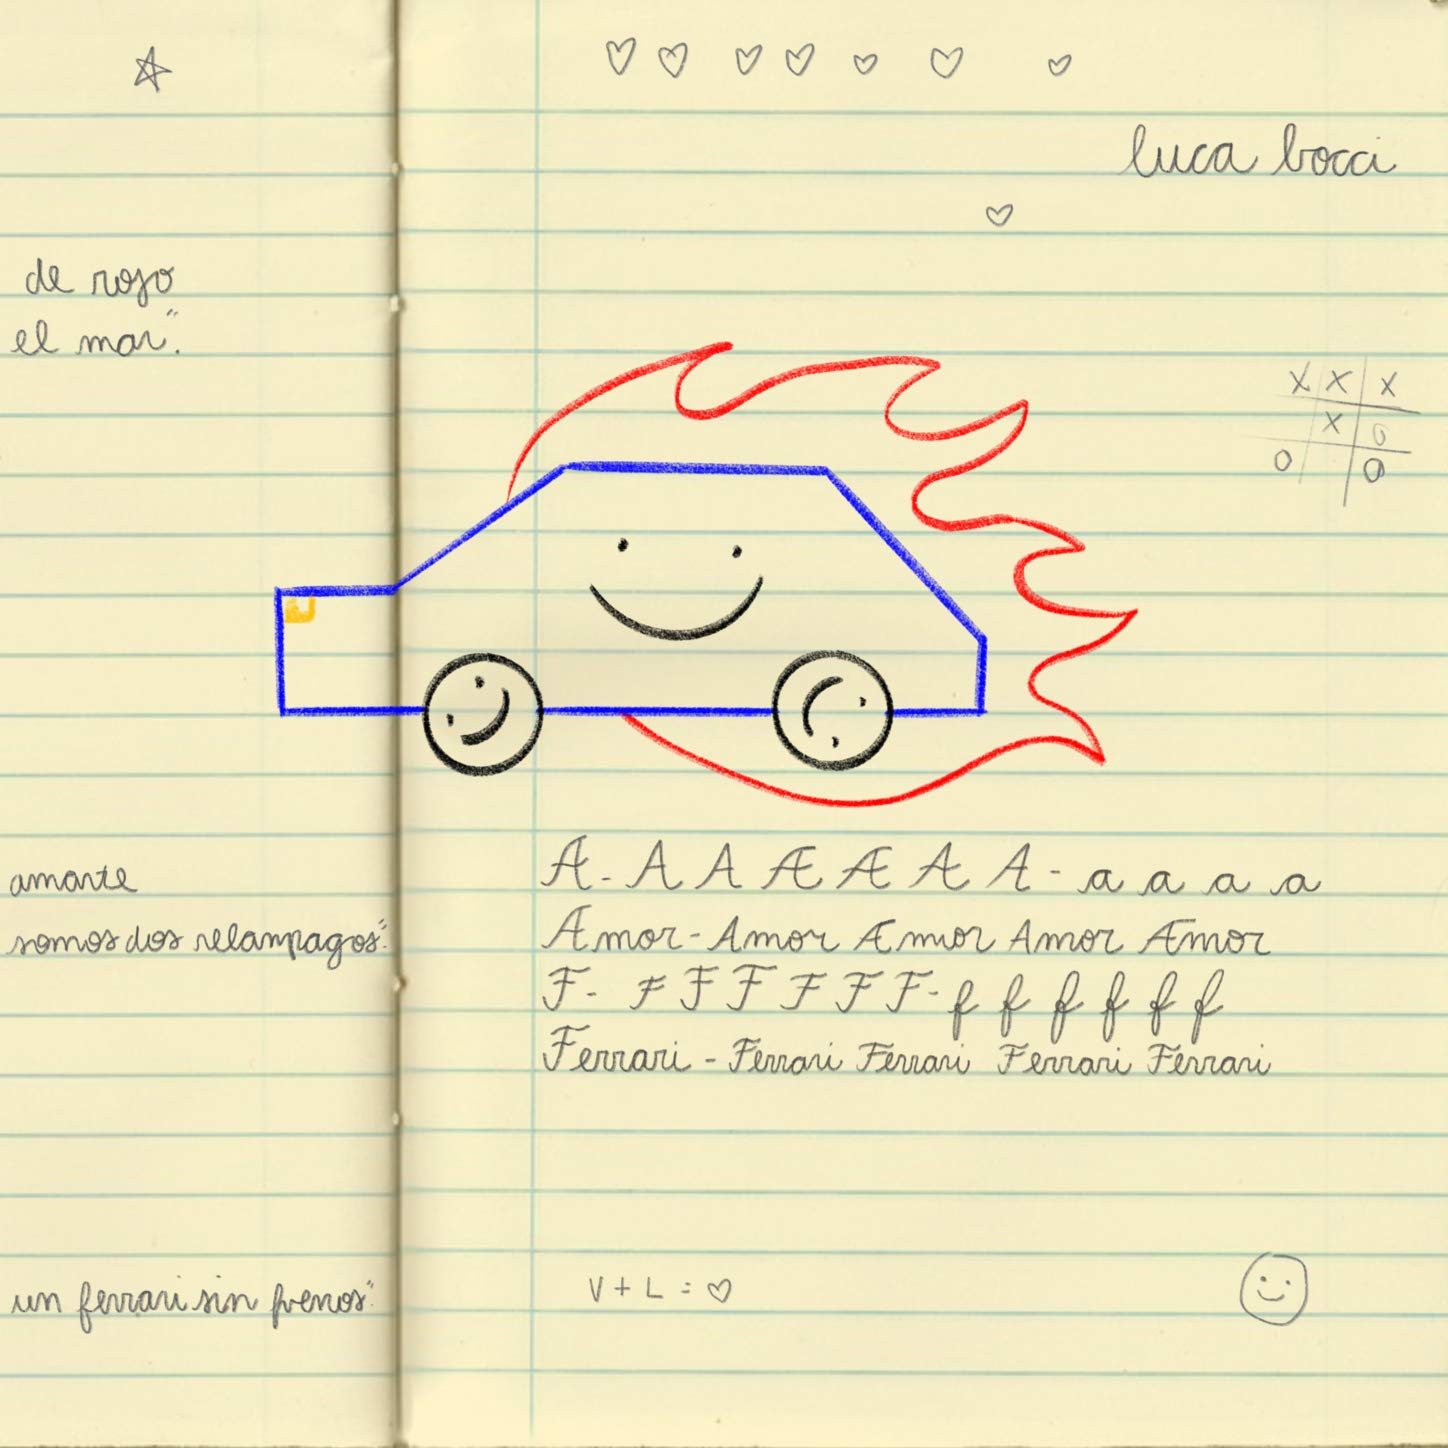 luca bocci
de rojo
el mar".
X X X
X O
O O
amarte
somos dos relampagos".
A - A A Æ Æ A A - a a a a
Amor - Amor Æmor Amor Æmor
F - F F F F F F - f f f f f f
Ferrari - Ferrari Ferrari Ferrari Ferrari
un ferrari sin frenos"
V + L =